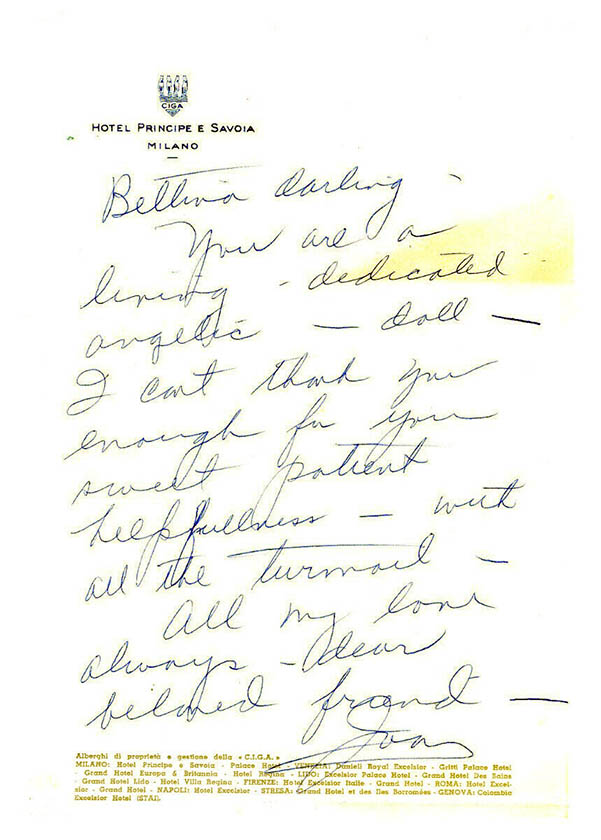 CIGA
HOTEL PRINCIPE E SAVOIA
MILANO
Bettina darling -
You are a
living - dedicated
angelic - doll -
I can't thank you
enough for your
sweet patient
helpfullness - with
all the turmoil -
All my love
always - dear
beloved friend -
Joan
Alberghi di proprietà e gestione della « C.I.G.A. »
MILANO: Hotel Principe e Savoia - Palace Hotel - VENEZIA: Danieli Royal Excelsior - Gritti Palace Hotel
- Grand Hotel Europa & Britannia - Hotel Regina - LIDO: Excelsior Palace Hotel - Grand Hotel Des Bains
- Grand Hotel Lido - Hotel Villa Regina - FIRENZE: Hotel Excelsior Italie - Grand Hotel - ROMA: Hotel Excel-
sior - Grand Hotel - NAPOLI: Hotel Excelsior - STRESA: Grand Hotel et des Iles Borromées - GENOVA: Colombia
Excelsior Hotel (STAI).